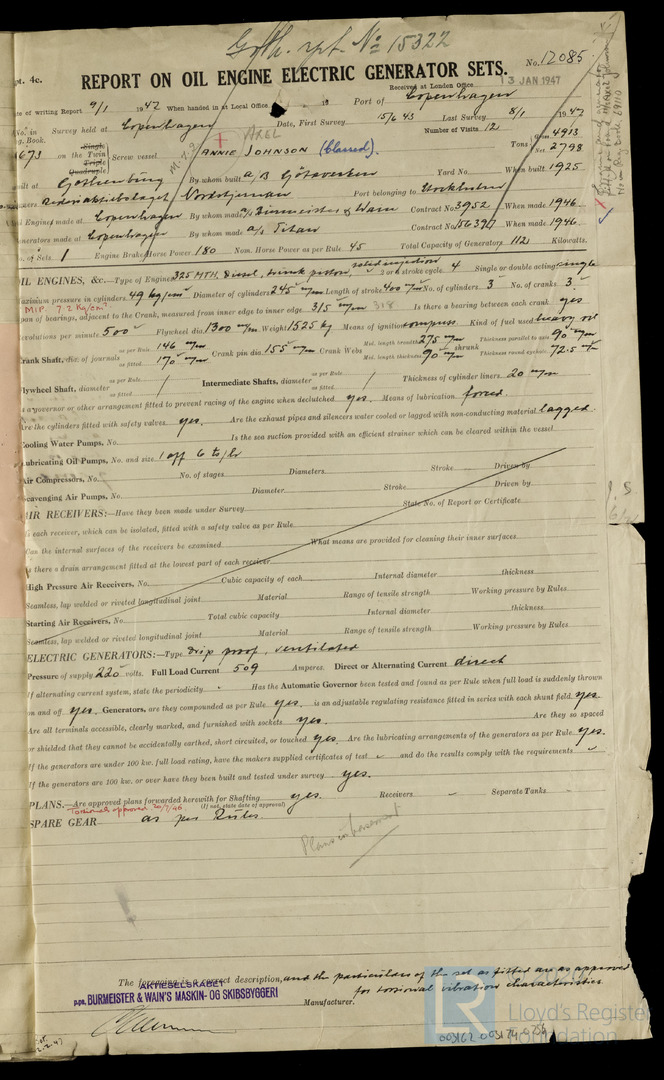 Goth. rpt. No 15322
pt. 4c.
REPORT ON OIL ENGINE ELECTRIC GENERATOR SETS.
No. 12085
Received at London Office 13 JAN 1947
te of writing Report 9/1 1947 When handed in at Local Office 19 Port of Copenhagen
No. in Survey held at Copenhagen Date, First Survey 15/6 43 Last Survey 8/1 1947
g. Book. Number of Visits 12
AXEL
1673 on the Single Twin Triple Quadruple Screw vessel ANNIE JOHNSON (classed). Tons Gross 4913 Net 2798
uilt at Gothenburg By whom built A/B Götaverken Yard No. When built 1925
wners Rederiaktiebolaget Nordstjernan Port belonging to Stockholm
Oil Engines made at Copenhagen By whom made A/S Burmeister & Wain Contract No. 3952 When made 1946
Generators made at Copenhagen By whom made A/S Titan Contract No. When made 1946
No. of Sets 1 Engine Brake Horse Power 180 Nom. Horse Power as per Rule 45 Total Capacity of Generators 112 Kilowatts.
OIL ENGINES, &c.—Type of Engine 325 MTH, Diesel, trunk piston, solid injection 2 or 4 stroke cycle 4 Single or double acting single
aximum pressure in cylinders 49 kg/cm² Diameter of cylinders 245 m/m Length of stroke 400 m/m No. of cylinders 3 No. of cranks 3
MIP. 7.2 Kg/cm²
pan of bearings, adjacent to the Crank, measured from inner edge to inner edge 315 m/m 318 Is there a bearing between each crank yes
Revolutions per minute 500 Flywheel dia. 1300 m/m Weight 1525 kg Means of ignition compress. Kind of fuel used heavy oil
Crank Shaft, dia. of journals as per Rule 146 m/m as fitted 170 m/m Crank pin dia. 155 m/m Crank Webs Mid. length breadth 275 m/m Mid. length thickness 90 m/m shrunk Thickness parallel to axis 90 m/m Thickness round eyehole 72.5 m/m
Flywheel Shaft, diameter as per Rule as fitted / Intermediate Shafts, diameter as per Rule as fitted / Thickness of cylinder liners 20 m/m
Is a governor or other arrangement fitted to prevent racing of the engine when declutched yes. Means of lubrication forced
Are the cylinders fitted with safety valves yes. Are the exhaust pipes and silencers water cooled or lagged with non-conducting material lagged
Cooling Water Pumps, No. Is the sea suction provided with an efficient strainer which can be cleared within the vessel
Lubricating Oil Pumps, No. and size 1 off 6 to/hr
Air Compressors, No. No. of stages Diameters Stroke Driven by
Scavenging Air Pumps, No. Diameter Stroke Driven by
AIR RECEIVERS:—Have they been made under Survey State No. of Report or Certificate
Is each receiver, which can be isolated, fitted with a safety valve as per Rule
Can the internal surfaces of the receivers be examined What means are provided for cleaning their inner surfaces
Is there a drain arrangement fitted at the lowest part of each receiver
High Pressure Air Receivers, No. Cubic capacity of each Internal diameter thickness
Seamless, lap welded or riveted longitudinal joint Material Range of tensile strength Working pressure by Rules
Starting Air Receivers, No. Total cubic capacity Internal diameter thickness
Seamless, lap welded or riveted longitudinal joint Material Range of tensile strength Working pressure by Rules
ELECTRIC GENERATORS:—Type Drip proof, ventilated
Pressure of supply 220 volts. Full Load Current 509 Amperes. Direct or Alternating Current direct
If alternating current system, state the periodicity - Has the Automatic Governor been tested and found as per Rule when full load is suddenly thrown
on and off yes. Generators, are they compounded as per Rule yes. is an adjustable regulating resistance fitted in series with each shunt field yes.
Are all terminals accessible, clearly marked, and furnished with sockets yes. Are they so spaced
or shielded that they cannot be accidentally earthed, short circuited, or touched yes. Are the lubricating arrangements of the generators as per Rule yes.
If the generators are under 100 kw. full load rating, have the makers supplied certificates of test and do the results comply with the requirements
If the generators are 100 kw. or over have they been built and tested under survey yes.
PLANS.—Are approved plans forwarded herewith for Shafting yes. Receivers Separate Tanks
(If not, state date of approval)
Torsional approved 20/7/46
SPARE GEAR as per Rules.
Plans in basement
The foregoing is a correct description, and the particulars of the set as fitted are as approved
for torsional vibration characteristics
AKTIESELSKABET
p.pa. BURMEISTER & WAIN'S MASKIN- OG SKIBSBYGGERI
Manufacturer.
LR
Lloyd's Register
Foundation
003162 003174 0256